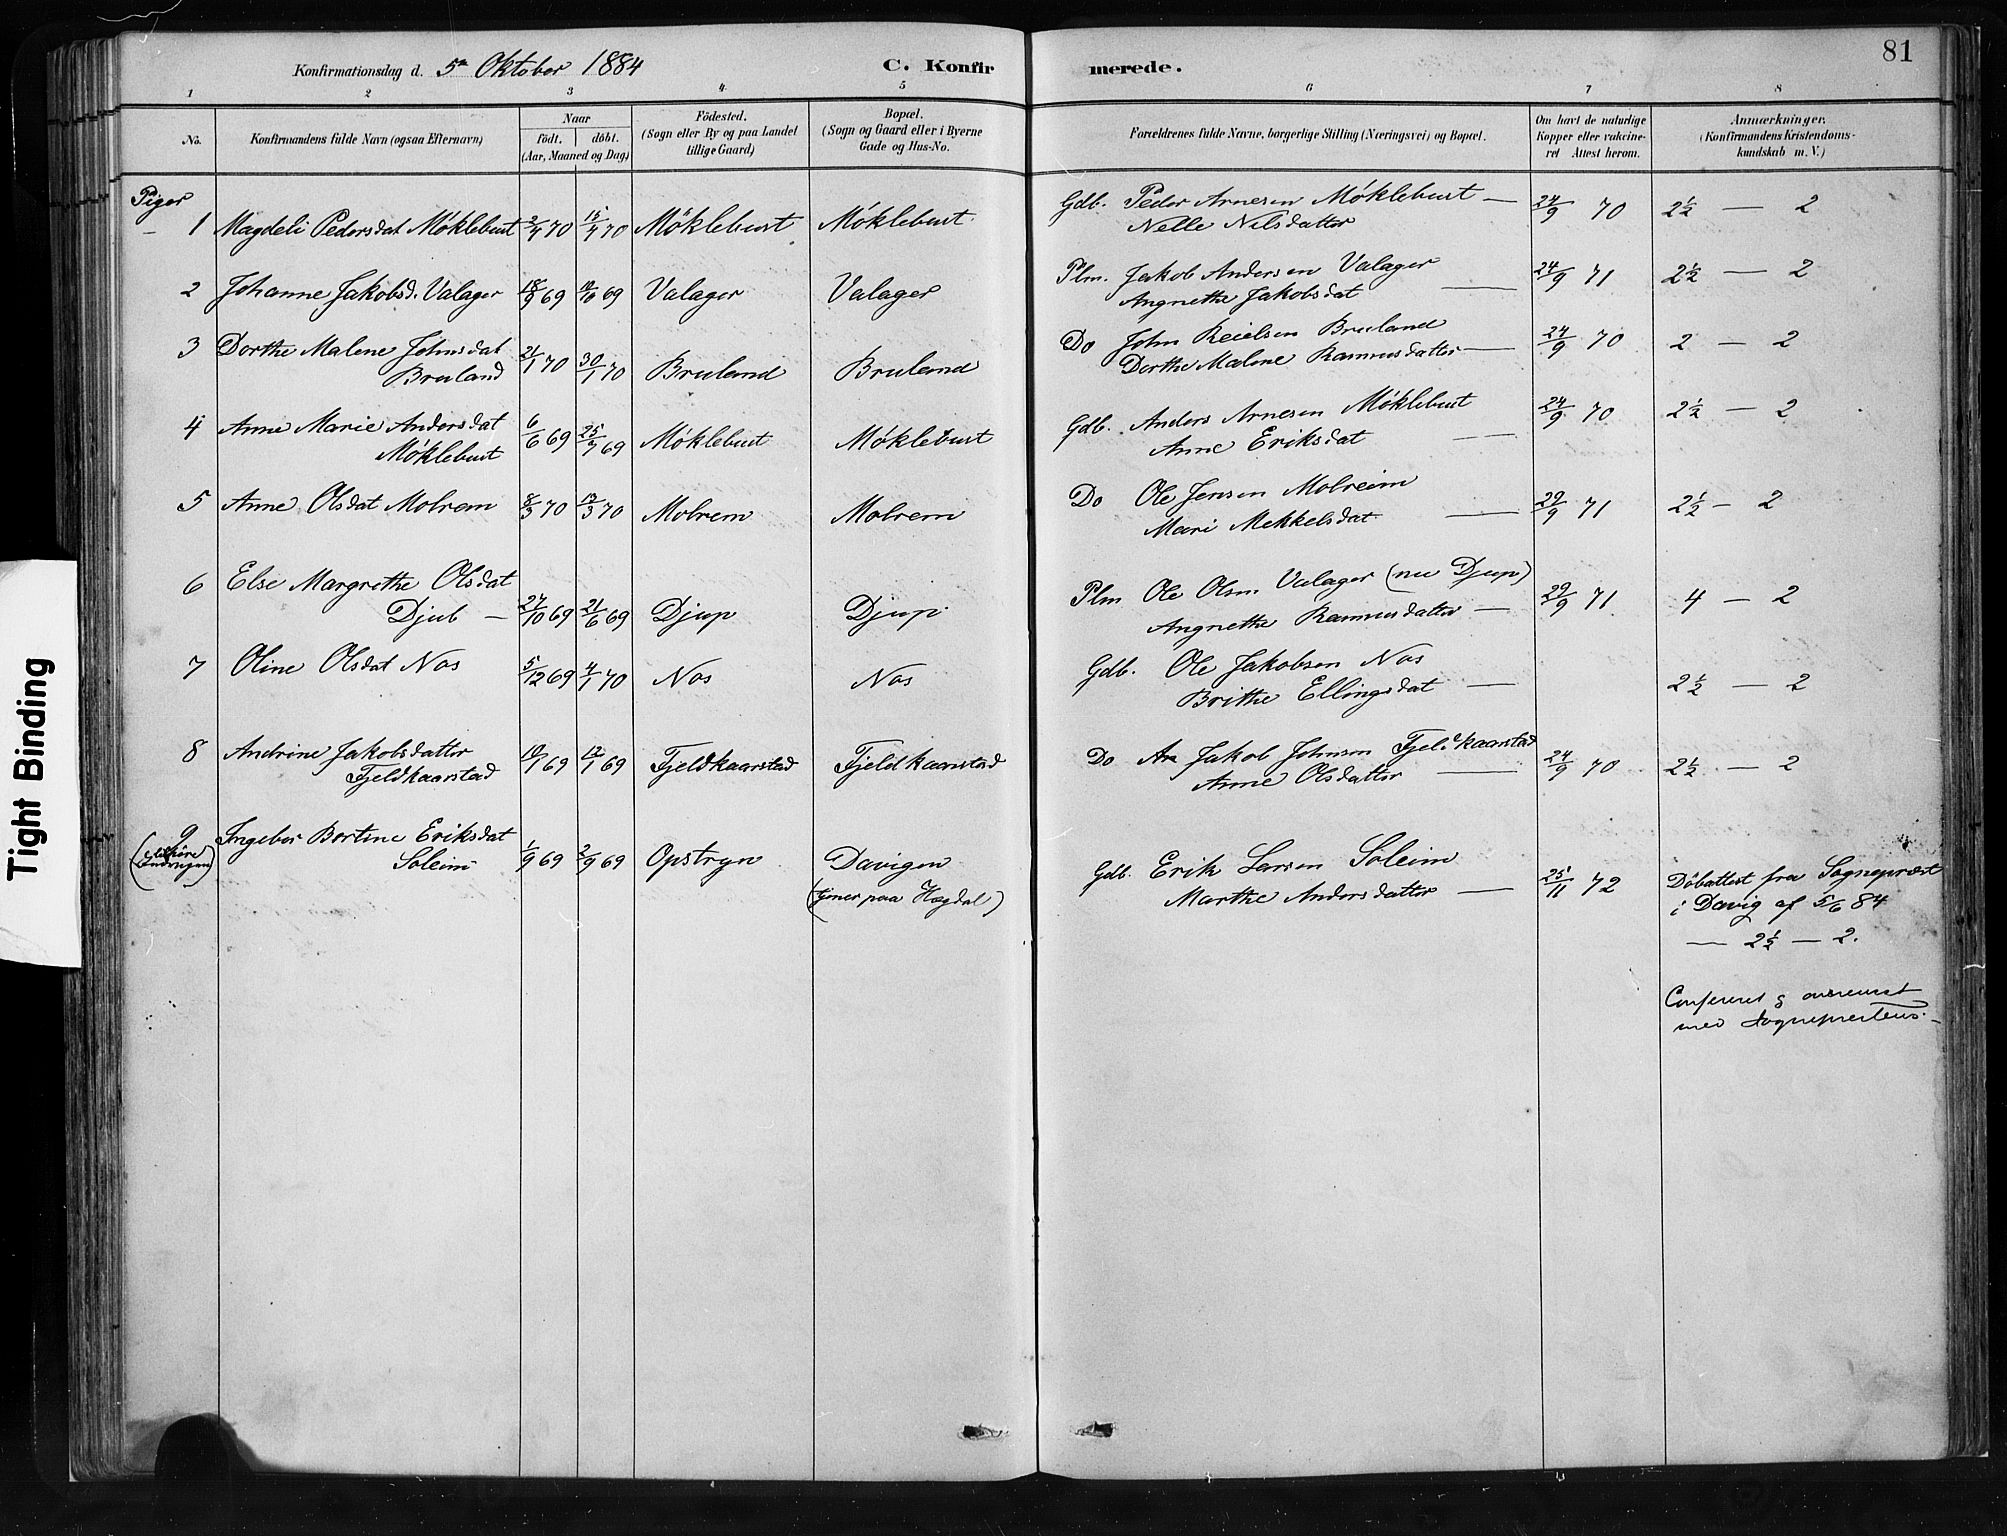 Konfirmationsdag d. 5te Oktober 1884 C. Konfir merede. 81
1 2 3 4 5 6 7 8
No. Konfirmandens fulde Navn (ogsaa Efternavn) Naar født. døbt. (Aar, Maaned og Dag) Fødested. (Sogn eller By og paa Landet tillige Gaard) Bopæl. (Sogn og Gaard eller i Byerne Gade og Hus-No. Forældrenes fulde Navne, borgerlige Stilling (Næringsvei) og Bopæl. Om havt de naturlige Kopper eller vakcineret Attest herom. Anmærkninger. (Konfirmandens Kristendomskundskab m. V.)
Piger
1 Magdeli Pedersdat Møklebust 2/4 70 15/4 70 Møklebust Møklebust Gdb. Peder Arnesen Møklebust — 24/9 70 2½ — 2
Nelle Nilsdatter
2 Johanne Jakobsd. Valager 18/9 69 12/10 69 Valager Valager Plm. Jakob Andersen Valager 24/9 71 2½ — 2
Angnethe Jakobsdat —
3 Dorthe Malene Johnsdat 21/1 70 30/1 70 Bruland Bruland Do John Reielsen Bruland 24/9 70 2 — 2
Bruland Dorthe Malene Rasmusdatter —
4 Anne Marie Andersdat 6/6 69 25/7 69 Møklebust Møklebust Gdb. Anders Arnesen Møklebust 24/9 70 2½ — 2
Møklebust Anne Eriksdat —
5 Anne Olsdat Molrem 8/3 70 13/3 70 Molrem Molrem Do Ole Jensen Molreim 29/9 71 2½ — 2
Mari Mekkelsdat —
6 Else Margrethe Olsdat Plm Ole Olsen Valager (nu Djup) 29/9 71 4 — 2
Djub — 27/10 69 21/6 69 Djup Djup Angnethe Rasmusdatter —
7 Oline Olsdat Nos 5/12 69 4/1 70 Nos Nos Gdb. Ole Jakobsen Nos
Brithe Ellingsdat — 2½ — 2
8 Andrine Jakobsdatter 10/1 69 12/1 69 Fjeldkaarstad Fjeldkaarstad Do Jakob Johnsen Fjeldkaarstad 24/9 70 2½ — 2
Fjeldkaarstad Anne Olsdatter —
9 Ingebor Bertine Eriksdat 1/9 69 2/9 69 Opstryn Davigen Gdb. Erik Larsen Soleim 25/11 72 Døbattest fra Sogneprest
Soleim (tjener paa Hagdal) Marthe Andersdatter — i Davig af 5/6 84
— 2½ — 2.
Confereret &
med Sogneprestens.
Tight Binding